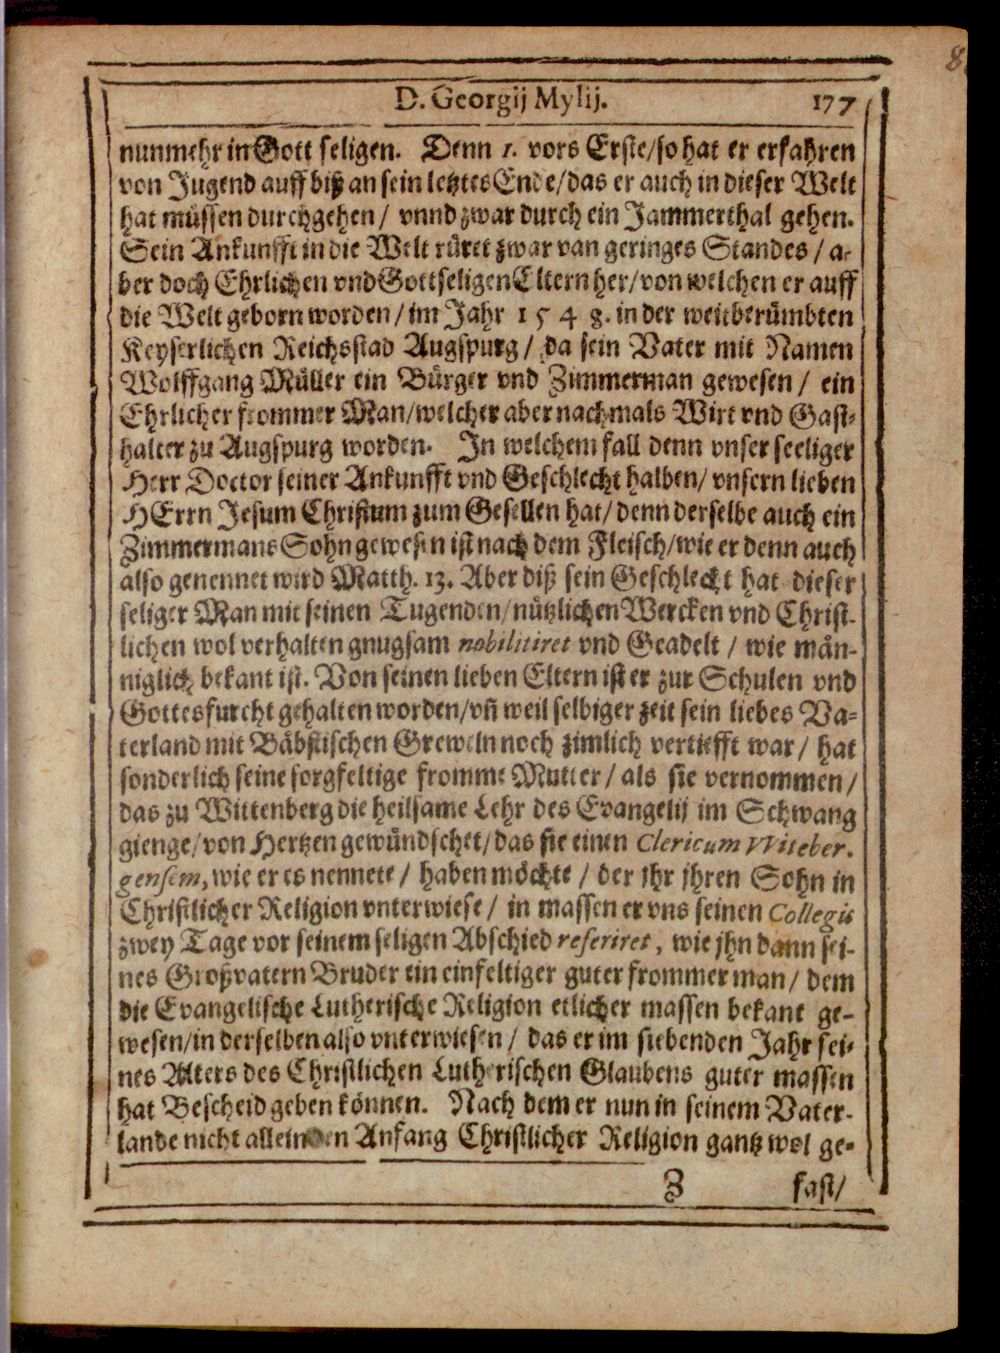 8
D. Georgij Mylij. 177
nunmehr in Gott seligen. Denn 1. vors Erste/so hat er erfahren
von Jugend auff biß an sein letztes Ende/das er auch in dieser Welt
hat müssen durchgehen/ vnnd zwar durch ein Jammerthal gehen.
Sein Ankunfft in die Welt rüret zwar van geringes Standes / a-
ber doch Ehrlichen vnd Gottseligen Eltern her/von welchen er auff
die Welt geborn worden/im Jahr 1548. in der weitberümbten
Keyserlichen Reichsstad Augspurg/ da sein Vater mit Namen
Wolffgang Müller ein Bürger vnd Zimmerman gewesen/ ein
Ehrlicher frommer Man/welcher aber nachmals Wirt vnd Gast-
halter zu Augspurg worden. In welchem fall denn vnser seeliger
Herr Doctor seiner Ankunfft vnd Geschlecht halben/ vnsern lieben
HErrn Jesum Christum zum Gesellen hat/ denn derselbe auch ein
Zimmermans Sohn gewesen ist nach dem Fleisch/wie er denn auch
also genennet wird Matth. 13. Aber diß sein Geschlecht hat dieser
seliger Man mit seinen Tugenden/nützlichen Wercken vnd Christ-
lichen wol verhalten gnugsam nobilitiret vnd Geadelt / wie män-
niglich bekant ist. Von seinen lieben Eltern ist er zur Schulen vnd
Gottesfurcht gehalten worden/vn̄ weil selbiger zeit sein liebes Va-
terland mit Bäbstischen Greweln noch zimlich vertiefft war/ hat
sonderlich seine sorgfeltige fromme Mutter/ als sie vernommen/
das zu Wittenberg die heilsame Lehr des Evangelij im Schwang
gienge/von Hertzen gewündschet/das sie einen Clericum Witeber-
gensem, wie er es nennete/ haben möchte / der jhr jhren Sohn in
Christlicher Religion vnterwiese/ in massen er vns seinen Collegis
zwey Tage vor seinem seligen Abschied referiret, wie jhn dann sei-
nes Großvatern Bruder ein einfeltiger guter frommer man/ dem
die Evangelische Lutherische Religion etlicher massen bekant ge-
wesen/in derselben also vnterwiesen/ das er im siebenden Jahr sei-
nes Alters des Christlichen Lutherischen Glaubens guter massen
hat Bescheid geben können. Nach dem er nun in seinem Vater-
lande nicht allein den Anfang Christlicher Religion gantz wol ge-
Z fast/